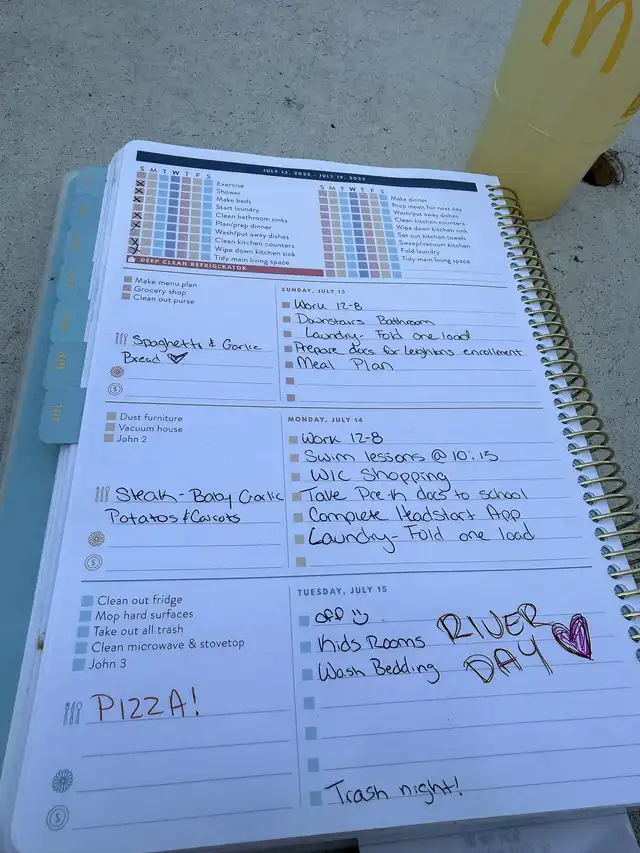 M
JULY 13, 2025 - JULY 19, 2025
S M T W T F S
Exercise
Shower
Make beds
Start laundry
Clean bathroom sinks
Plan/prep dinner
Wash/put away dishes
Clean kitchen counters
Wipe down kitchen sink
Tidy main living space
S M T W T F S
Make dinner
Prep meals for next day
Wash/put away dishes
Clean kitchen counters
Wipe down kitchen sink
Set out kitchen towels
Sweep/vacuum kitchen
Fold laundry
Tidy main living space
DEEP CLEAN REFRIGERATOR
Make menu plan
Grocery shop
Clean out purse
Spaghetti & Garlic
Bread
SUNDAY, JULY 13
Work 12-8
Downstairs Bathroom
Laundry- Fold one load
Prepare docs for Leightons enrollment
Meal Plan
Dust furniture
Vacuum house
John 2
Steak - Baby Garlic
Potatos & Carrots
MONDAY, JULY 14
Work 12-8
Swim lessons @ 10:15
WIC Shopping
Take Pre-K docs to school
Complete Headstart App
Laundry- Fold one load
Clean out fridge
Mop hard surfaces
Take out all trash
Clean microwave & stovetop
John 3
PIZZA!
TUESDAY, JULY 15
off
Kids Rooms
Wash Bedding
RIVER
DAY
Trash night!